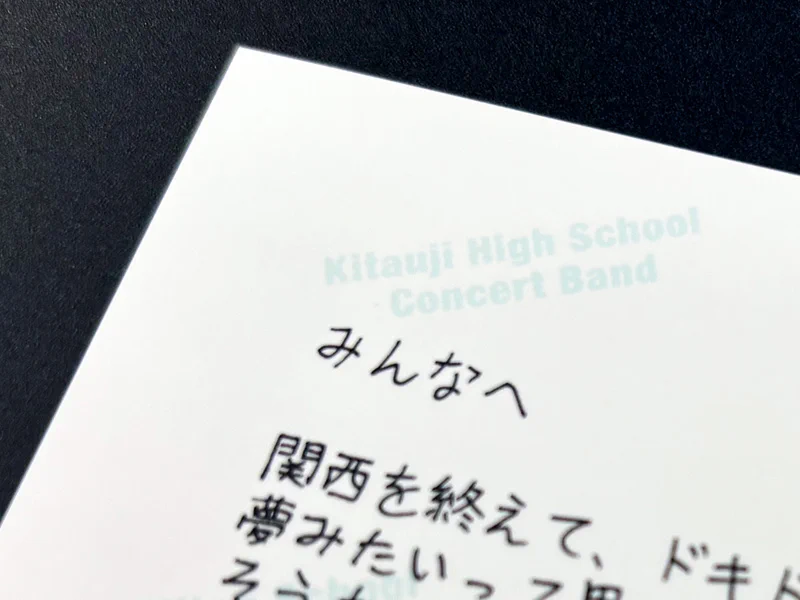 Kitauji High School
Concert Band
みんなへ
関西を終えて、ドキド
夢みたいって思
そうか